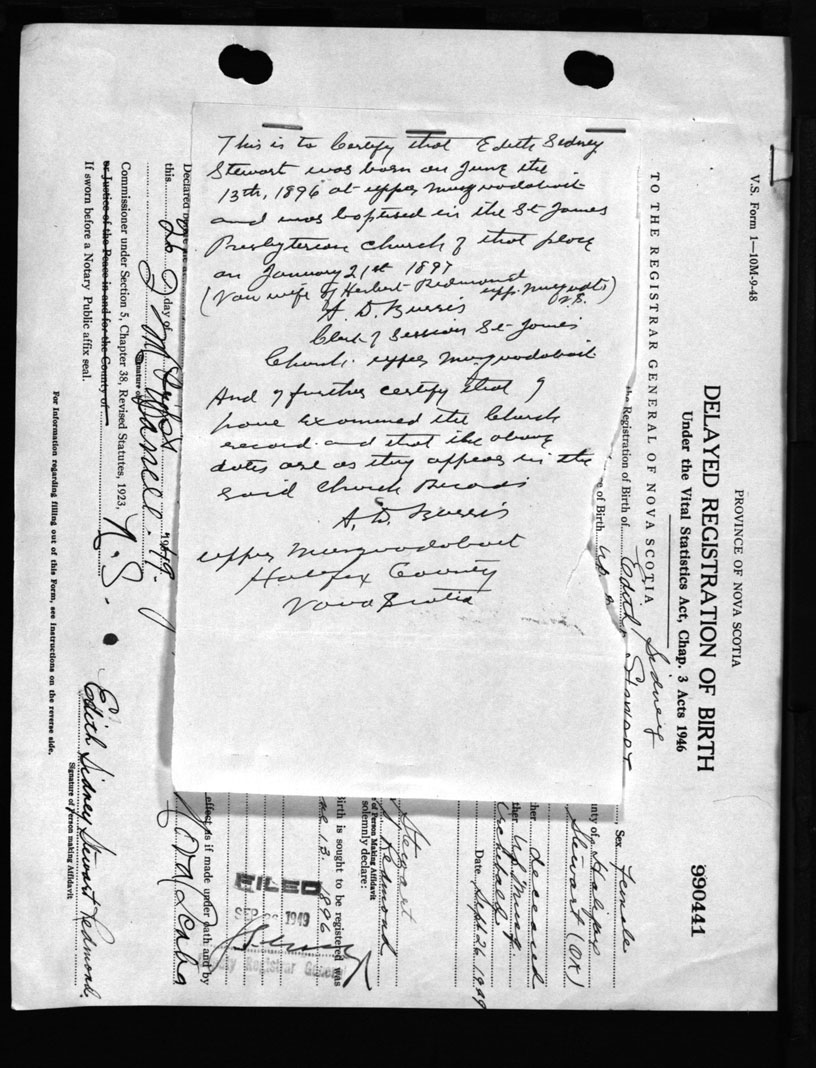 This is to Certify that Edith Sidney
Stewart was born on June the
13th, 1896 at upper Musquodoboit
and was baptised in the St James
Presbyterian Church of that place
on January 21st 1897
(Now wife of Herbert Redmond
upp. Musquodt)
N.S.
A. D. Burris
Clerk of Session St James
Church. upper Musquodoboit
And I further certify that I
have examined the Church
record and that the above
dates are as they appear in the
said Church Records
A. D. Burris
upper Musquodoboit
Halifax County
Nova Scotia
V.S. Form 1—10M-9-48
PROVINCE OF NOVA SCOTIA
DELAYED REGISTRATION OF BIRTH
Under the Vital Statistics Act, Chap. 3 Acts 1946
990441
TO THE REGISTRAR GENERAL OF NOVA SCOTIA
the Registration of Birth of Edith Sidney Stewart
Sex Female
of Birth Up
nty of Halifax
Stewart (OK)
her deceased
ther Up. Musq.
Archibald
Date Sept 26 1949
Stewart
Redmond
e of Person Making Affidavit
solemnly declare:
Birth is sought to be registered was
13 1896
FILED
1949
Registrar General
effect as if made under oath and by
Declared
this 26 day of
1949.
Signature of
Commissioner under Section 5, Chapter 38, Revised Statutes, 1923,
or Justice of the Peace in and for the County of
N.S.
If sworn before a Notary Public affix seal.
Edith Sidney Stewart Redmond.
Signature of Person making Affidavit
For Information regarding filling out of this Form, see Instructions on the reverse side.